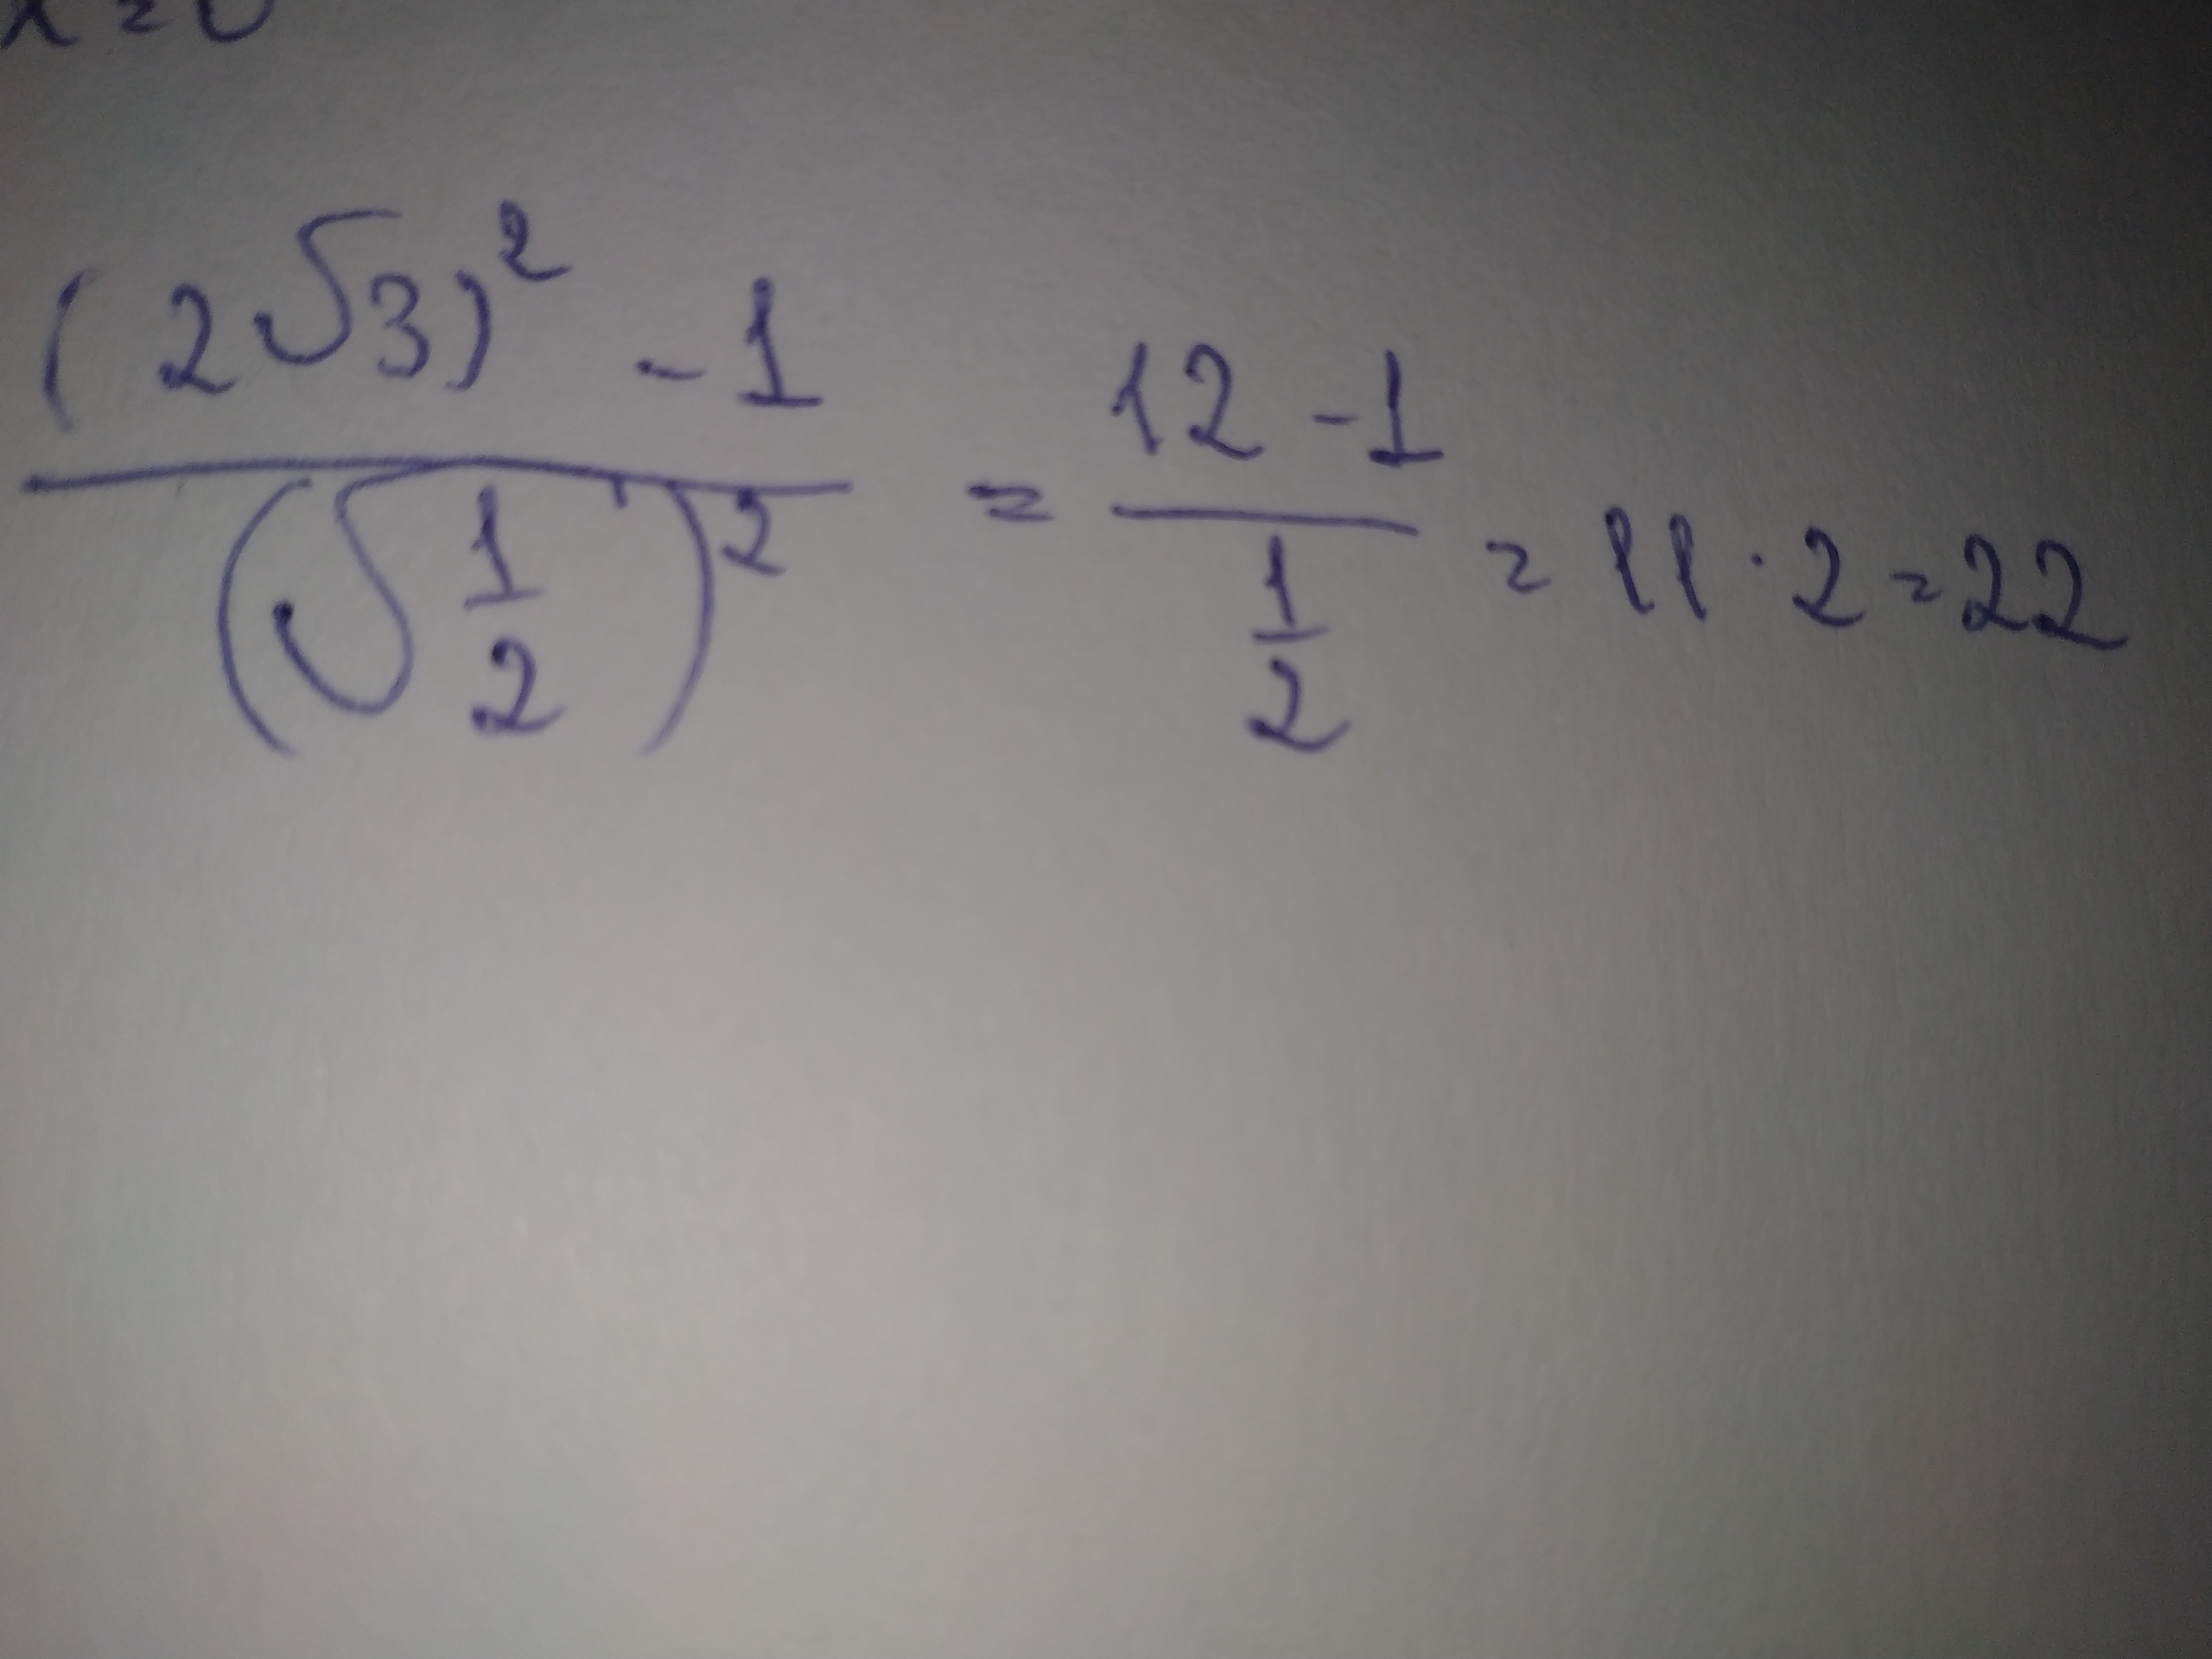 x = 0
\frac{(2\sqrt{3})^2 - 1}{\left(\sqrt{\frac{1}{2}}\right)^2} = \frac{12 - 1}{\frac{1}{2}} = 11 \cdot 2 = 22